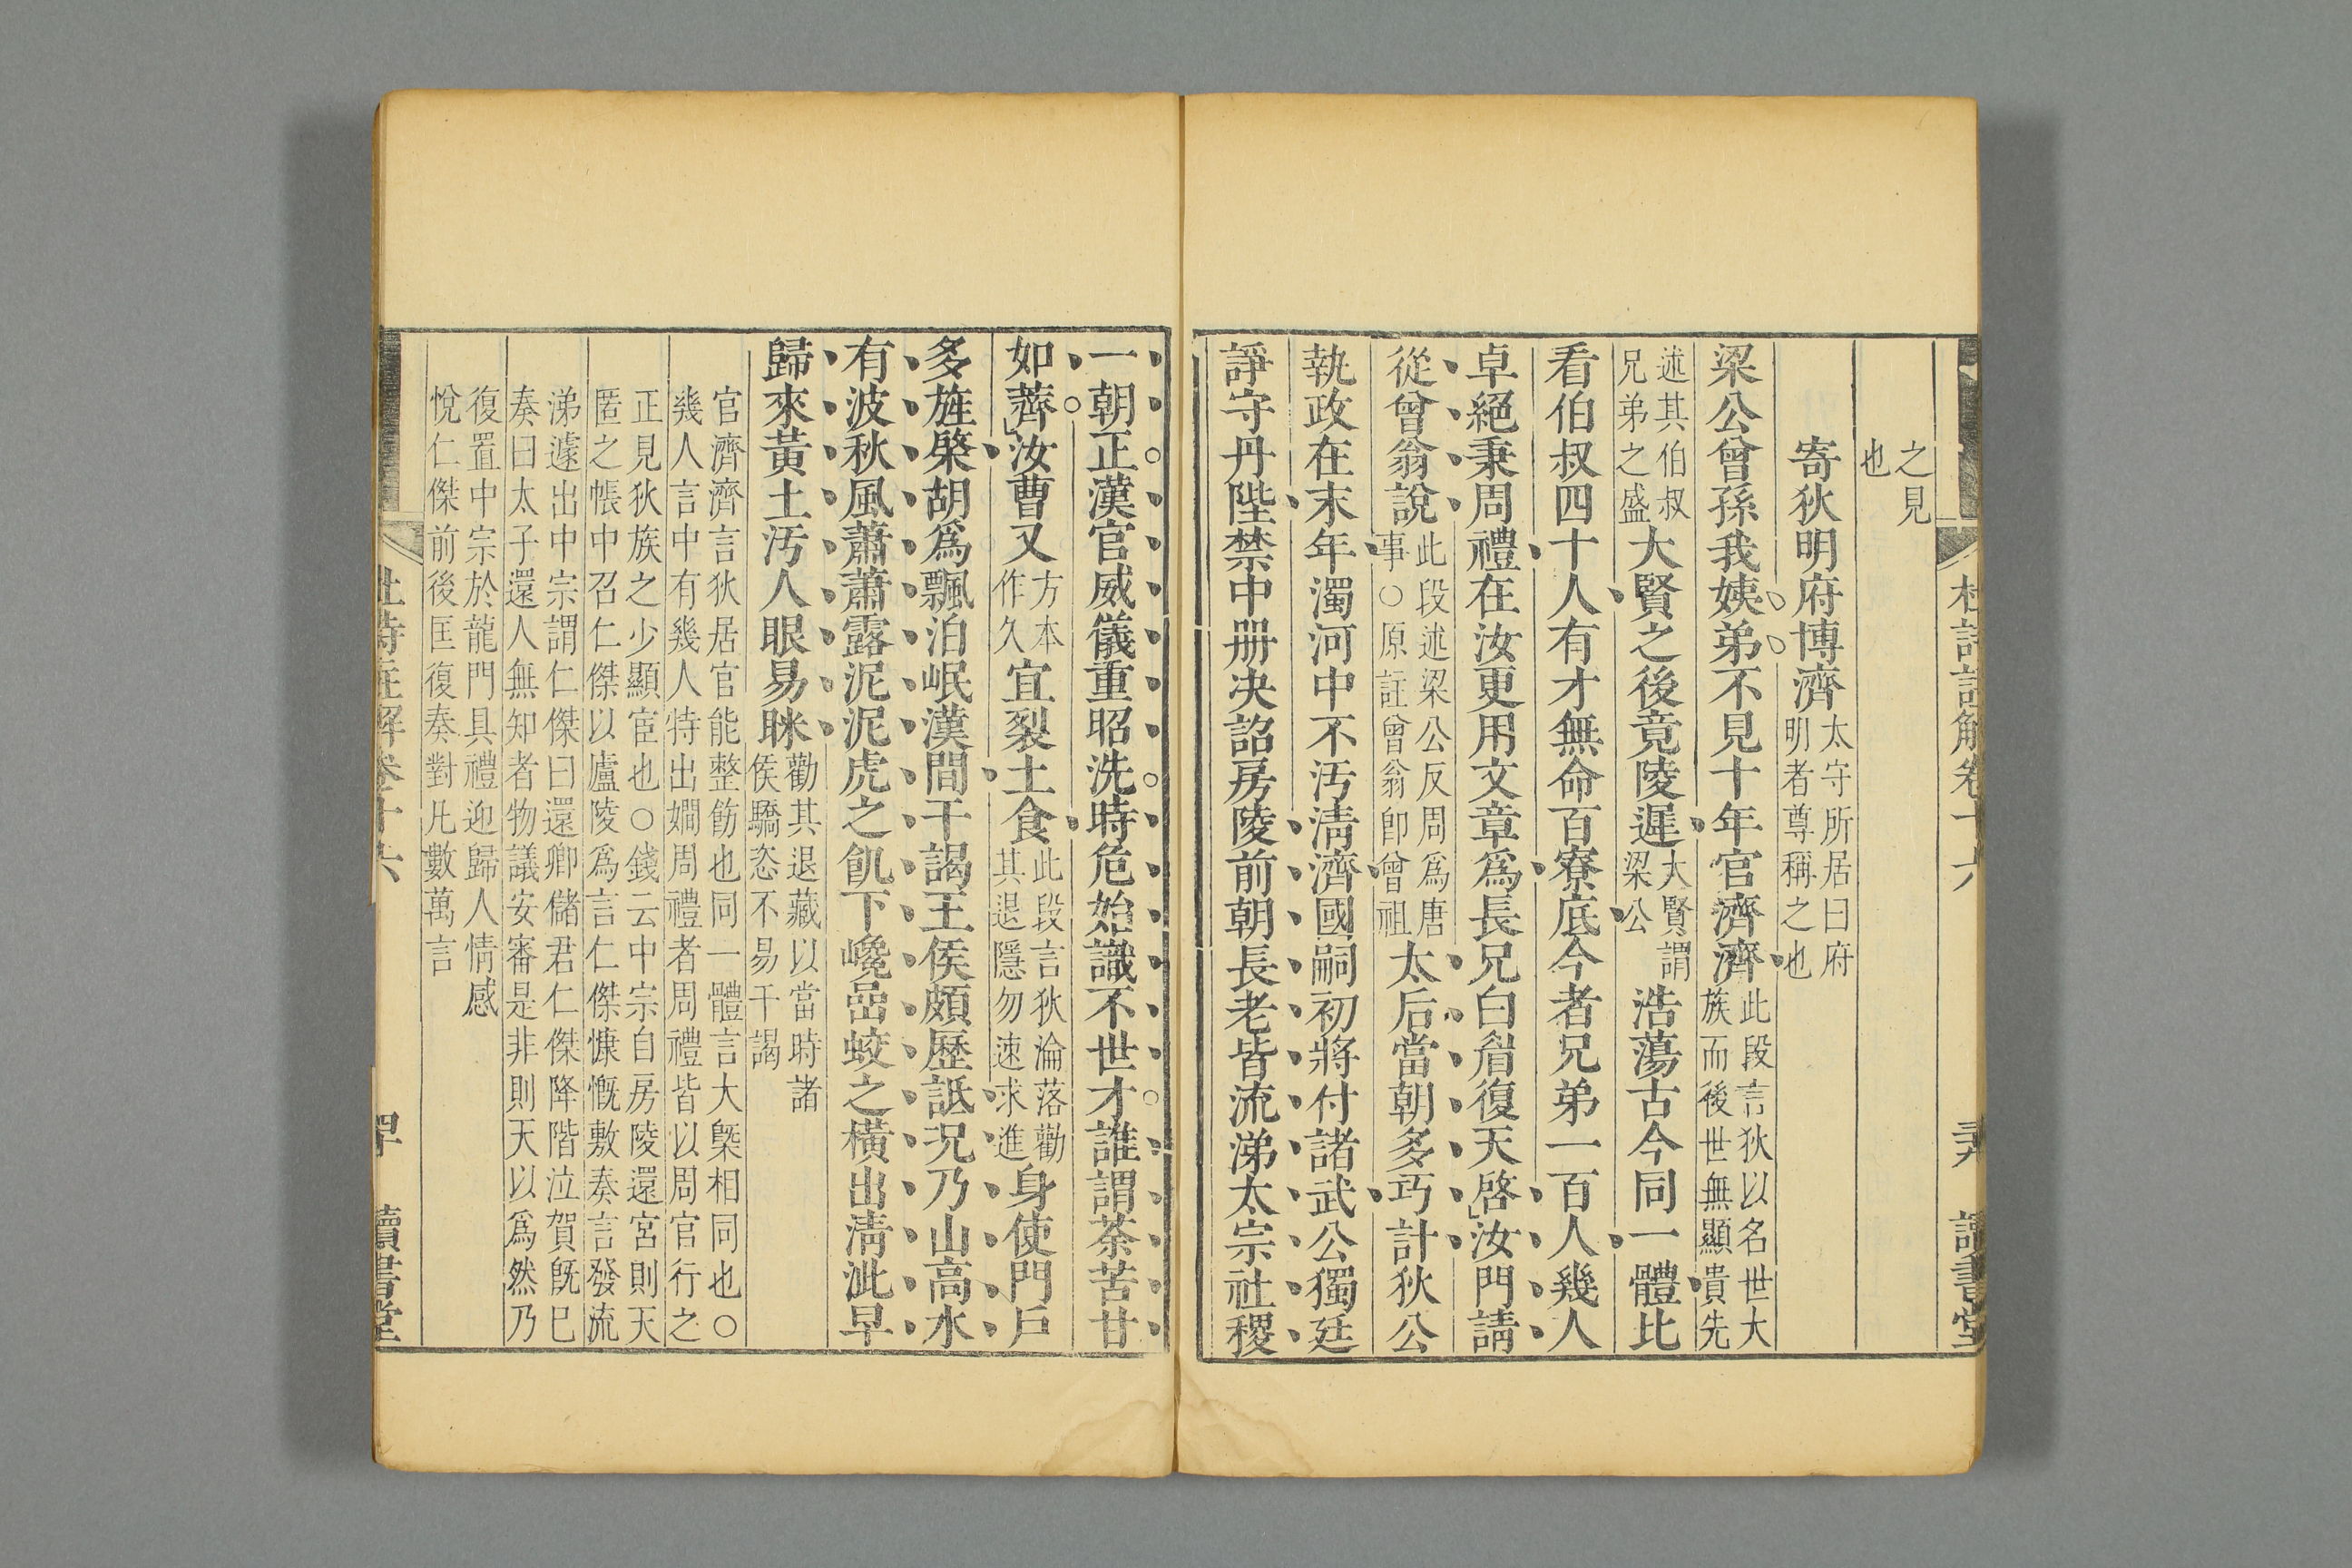 之見
也
寄狄明府博濟太守所居曰府
明者尊稱之也
梁公曾孫我姨弟不見十年官濟濟此段言狄以名世大
族而後世無顯貴先
述其伯叔
兄弟之盛大賢之後竟陵遲大賢謂
梁公浩蕩古今同一體比
看伯叔四十人有才無命百寮底今者兄弟一百人幾人
卓絕秉周禮在汝更用文章爲長兄白眉復天啓汝門請
從曾翁說此段述梁公反周爲唐
事○原註曾翁卽曾祖太后當朝多巧計狄公
執政在末年濁河中不汚淸濟國嗣初將付諸武公獨廷
諍守丹陛禁中册决詔房陵前朝長老皆流涕太宗社稷
一朝正漢官威儀重昭洗時危始識不世才誰謂荼苦甘
如薺汝曹又方本
作久宜裂土食此段言狄淪落勸
其退隱勿速求進身使門戶
多旌棨胡爲飄泊岷漢間干謁王侯頗歷詆況乃山高水
有波秋風蕭蕭露泥泥虎之飢下巉嵒蛟之橫出淸泚早
歸來黃土汚人眼易眯勸其退藏以當時諸
侯驕恣不易干謁
官濟濟言狄居官能整飭也同一體言大槩相同也○
幾人言中有幾人特出嫺周禮者周禮皆以周官行之
正見狄族之少顯宦也○錢云中宗自房陵還宮則天
匿之帳中召仁傑以廬陵爲言仁傑慷慨敷奏言發流
涕遽出中宗謂仁傑曰還卿儲君仁傑降階泣賀旣已
奏曰太子還人無知者物議安審是非則天以爲然乃
復置中宗於龍門具禮迎歸人情感
悅仁傑前後匡復奏對凡數萬言
杜詩註解卷十六
讀書堂